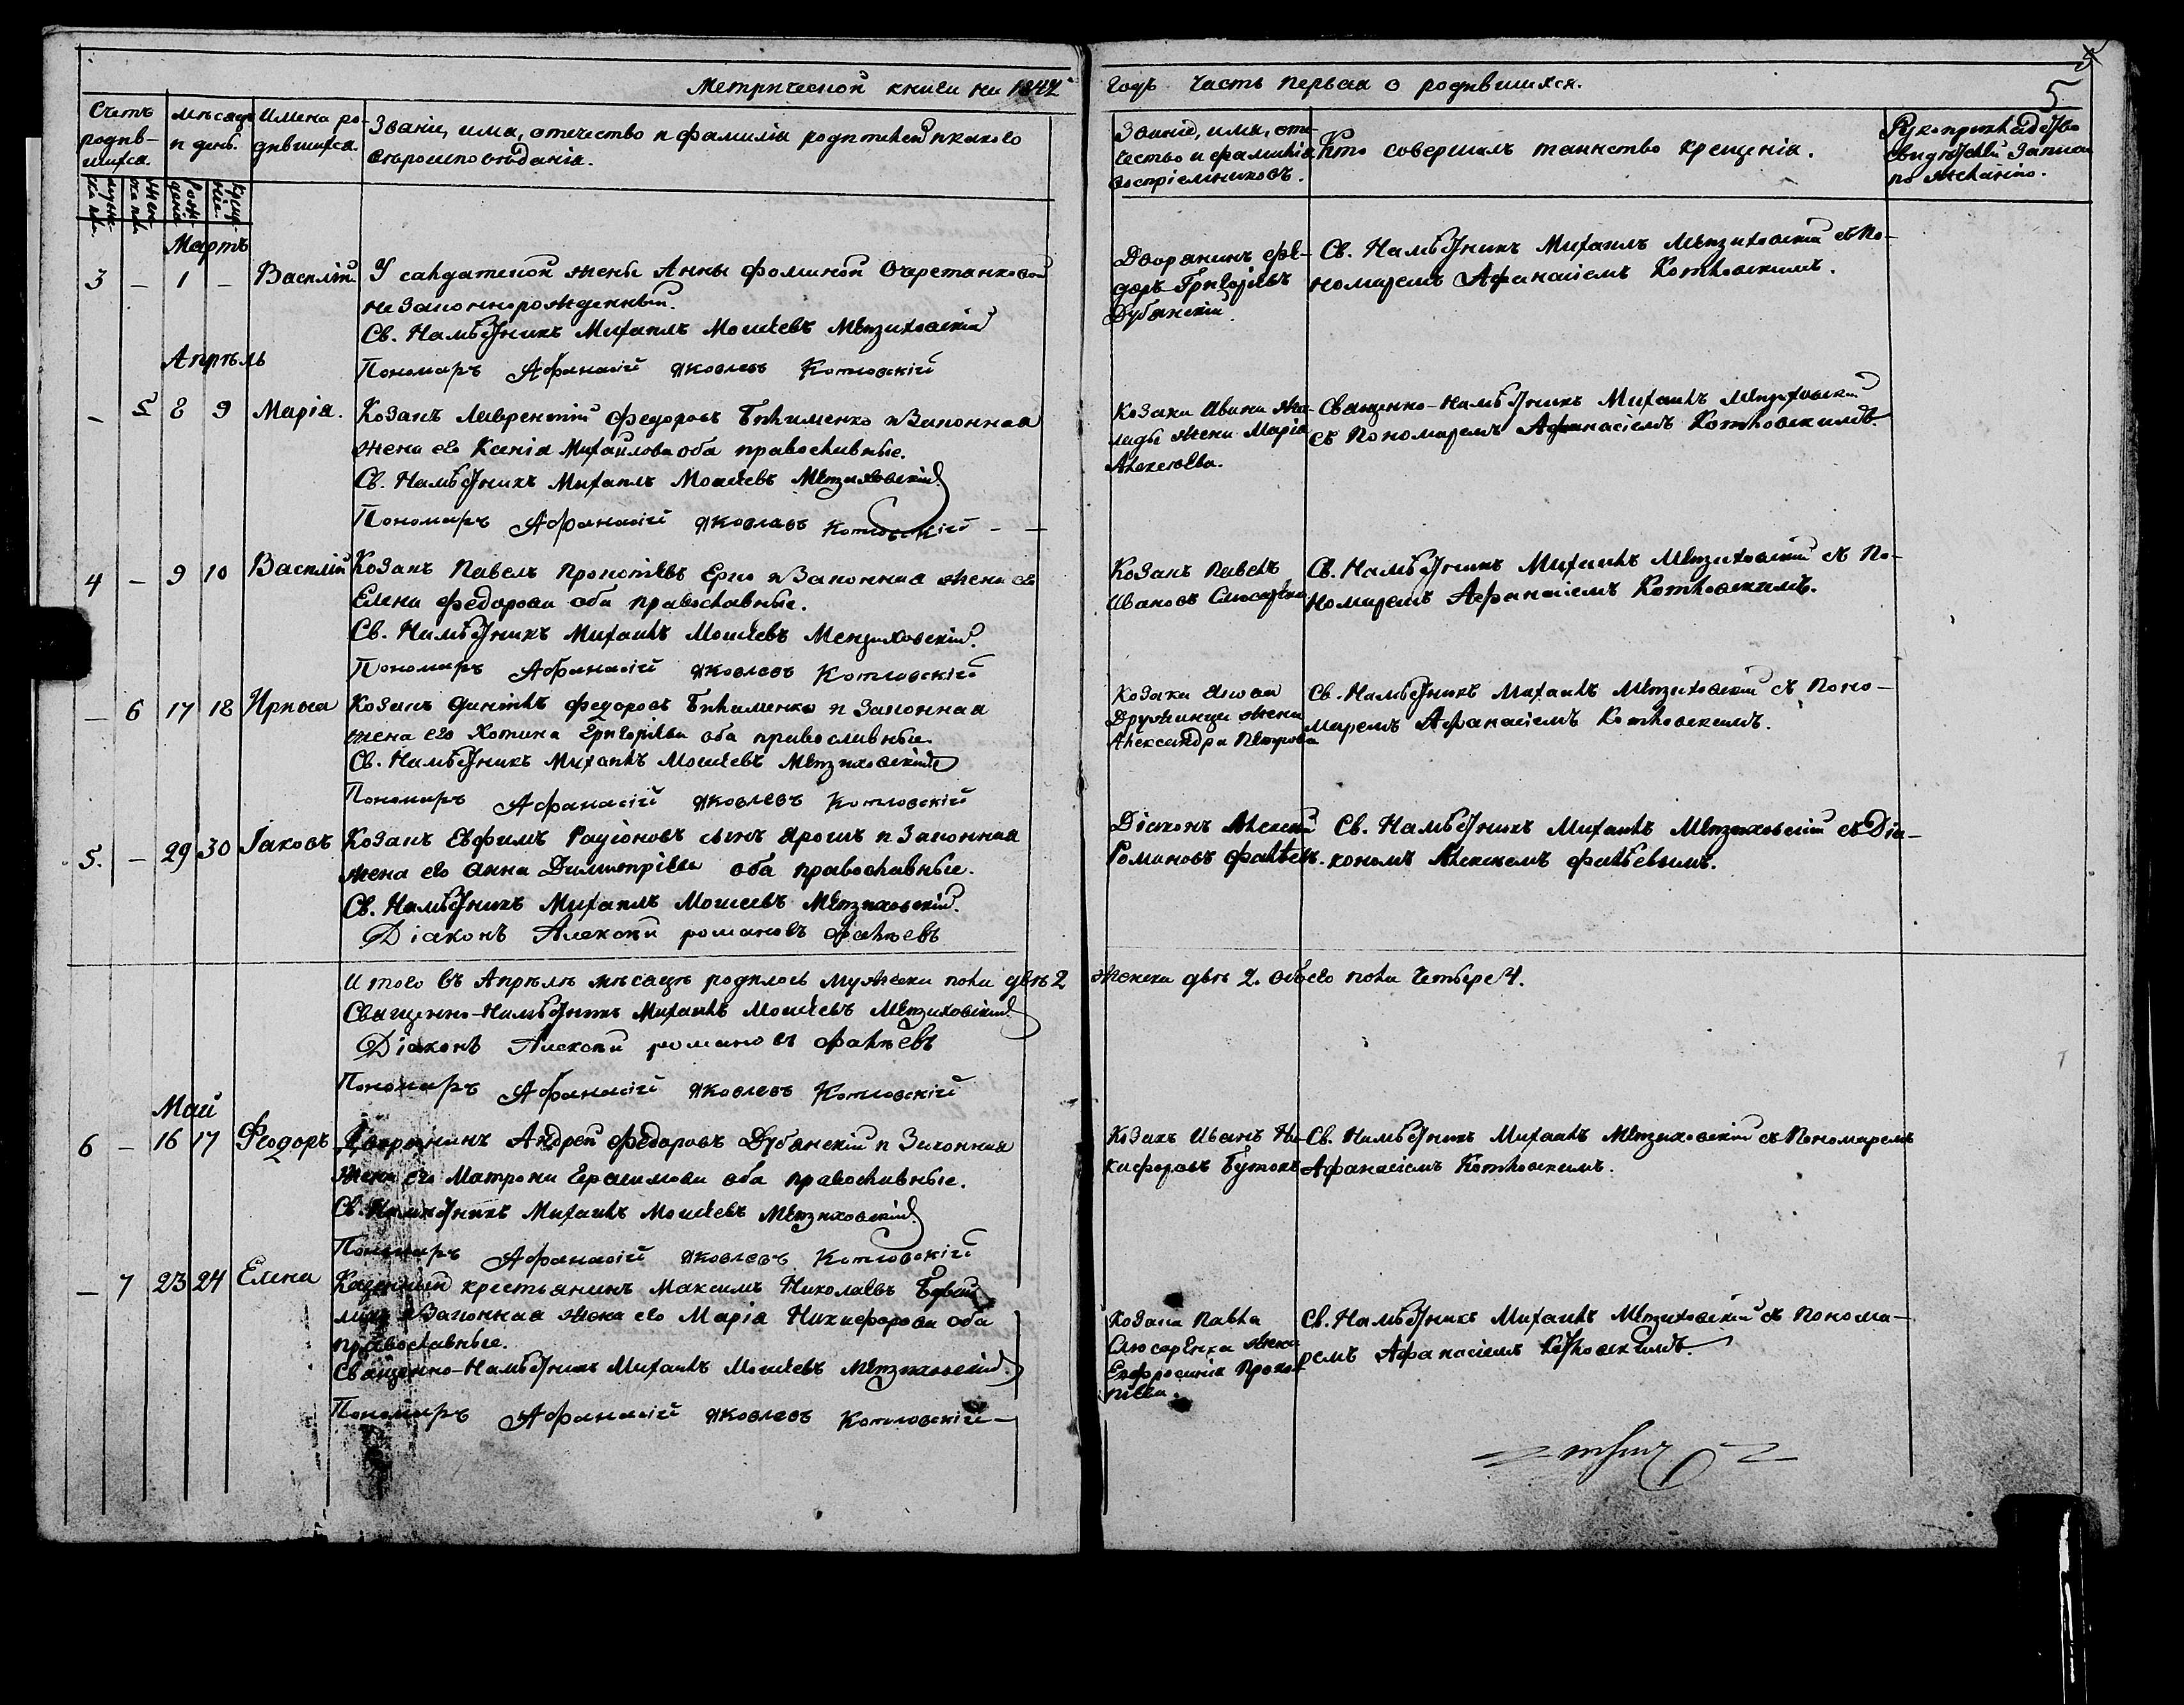 Метрической книги на 1842
годъ Часть первая о родившихся.
5
Счетъ родив-шихся
мѣсяцъ и день.
Имена ро-дившихся.
Званіе, имя, отечество и фамилія родителей и какого
вѣроисповѣданія.
Званіе, имя, оте-
чество и фамилія
воспріемниковъ.
Кто совершалъ таинство крещенія.
Рукоприкладство
свидѣтелей записи
по желанію.
Мартъ
3 — 1 — Василій
У салдатской жены Анны Фоминой Очретанковой
незаконнорожденный.
Св. Намѣстникъ Михаилъ Моисеевъ
Пономарь Афанасій Яковлевъ Котловскій
Дворянинъ Фе-
доръ Григорьевъ
Дубянскій.
Св. Намѣстникъ Михаилъ съ По-
номаремъ Афанасіемъ Котловскимъ.
Апрѣль
— 5 8 9 Марія.
Козакъ Лаврентій Федоровъ и Законная
жена его Ксенія Михайлова оба православные.
Св. Намѣстникъ Михаилъ Моисеевъ
Пономарь Афанасій Яковлевъ Котловскій
Козака Ивана
жена Марія
Алексѣева.
Священно-Намѣстникъ Михаилъ
съ Пономаремъ Афанасіемъ Котловскимъ.
4 — 9 10 Василій
Козакъ Павелъ Прокопіевъ и Законная жена его
Елена Федорова оба православные.
Св. Намѣстникъ Михаилъ Моисеевъ
Пономарь Афанасій Яковлевъ Котловскій
Козакъ Павелъ
Ивановъ Слюсаренко
Св. Намѣстникъ Михаилъ съ По-
номаремъ Афанасіемъ Котловскимъ.
— 6 17 18 Ирина
Козакъ Федоровъ и Законная
жена его Григоріева оба православные.
Св. Намѣстникъ Михаилъ Моисеевъ
Пономарь Афанасій Яковлевъ Котловскій
Козака
жена
Александра Петрова
Св. Намѣстникъ Михаилъ съ Поно-
маремъ Афанасіемъ Котловскимъ.
5. — 29 30 Іаковъ
Козакъ Евфимъ сынъ и Законная
жена его Анна Димитріева оба православные.
Св. Намѣстникъ Михаилъ Моисеевъ
Діаконъ Алексѣй Романовъ Фалѣевъ
Діаконъ Алексѣй
Романовъ Фалѣевъ.
Св. Намѣстникъ Михаилъ съ Діа-
кономъ Алексѣемъ Фалѣевымъ.
Итого въ Апрѣлѣ мѣсяцѣ родилось мужеска пола двѣ 2
женска двѣ 2. обоего пола Четыре 4.
Священно-Намѣстникъ Михаилъ Моисеевъ
Діаконъ Алексѣй Романовъ Фалѣевъ
Пономарь Афанасій Яковлевъ Котловскій
Май
6 — 16 17 Феодоръ
Дворянинъ Андрей Федоровъ Дубянскій и Законная
жена его Матрона Герасимова оба православные.
Св. Намѣстникъ Михаилъ Моисеевъ
Пономарь Афанасій Яковлевъ Котловскій
Козакъ Иванъ Ни-
кифоровъ
Св. Намѣстникъ Михаилъ съ Пономаремъ
Афанасіемъ Котловскимъ.
— 7 23 24 Елена
Казенный крестьянинъ Максимъ Николаевъ
и Законная жена его Марія Никифорова оба
православные.
Священно-Намѣстникъ Михаилъ Моисеевъ
Пономарь Афанасій Яковлевъ Котловскій
Козака Павла
Слюсаренка жена
Евфросинія Проко-
піева.
Св. Намѣстникъ Михаилъ съ Понома-
ремъ Афанасіемъ Котловскимъ.